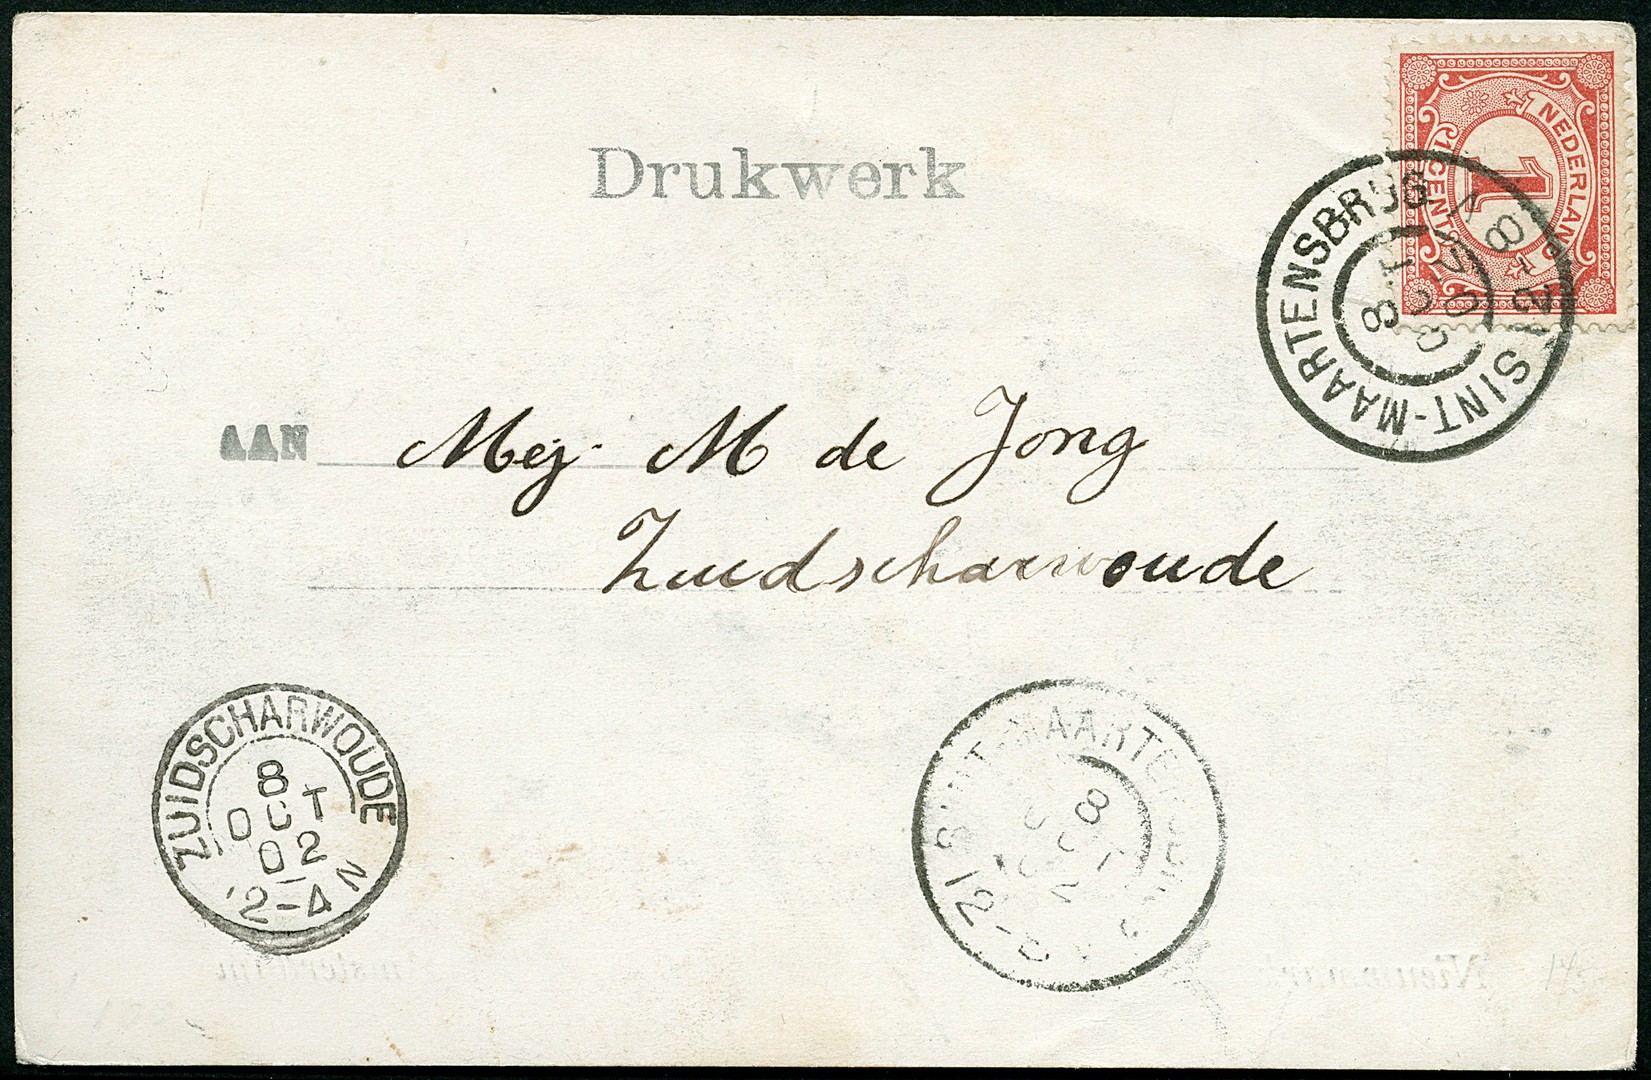 Drukwerk
NEDERLAND
1 CENT
1
SINT-MAARTENSBRUG
8 OCT 02
8-12 V
AAN Mej. M de Jong
Zuidscharwoude
ZUIDSCHARWOUDE
8
OCT
02
2-4 N
SINT-MAARTENSBRUG
8
OCT
02